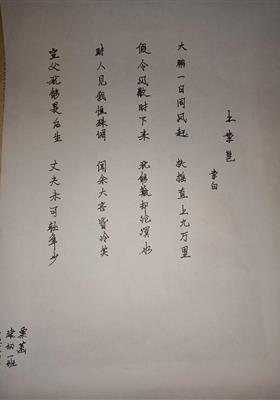 上李邕
李白
大鹏一日同风起 扶摇直上九万里
假令风歇时下来 犹能簸却沧溟水
时人见我恒殊调 闻余大言皆冷笑
宣父犹能畏后生 丈夫未可轻年少
栗菡
一班